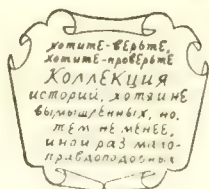 хотите-верьте,
хотите-проверьте
КОЛЛЕКЦИЯ
историй, хотя и не
вымышленных, но,
тем не менее,
иной раз мало-
правдоподобных